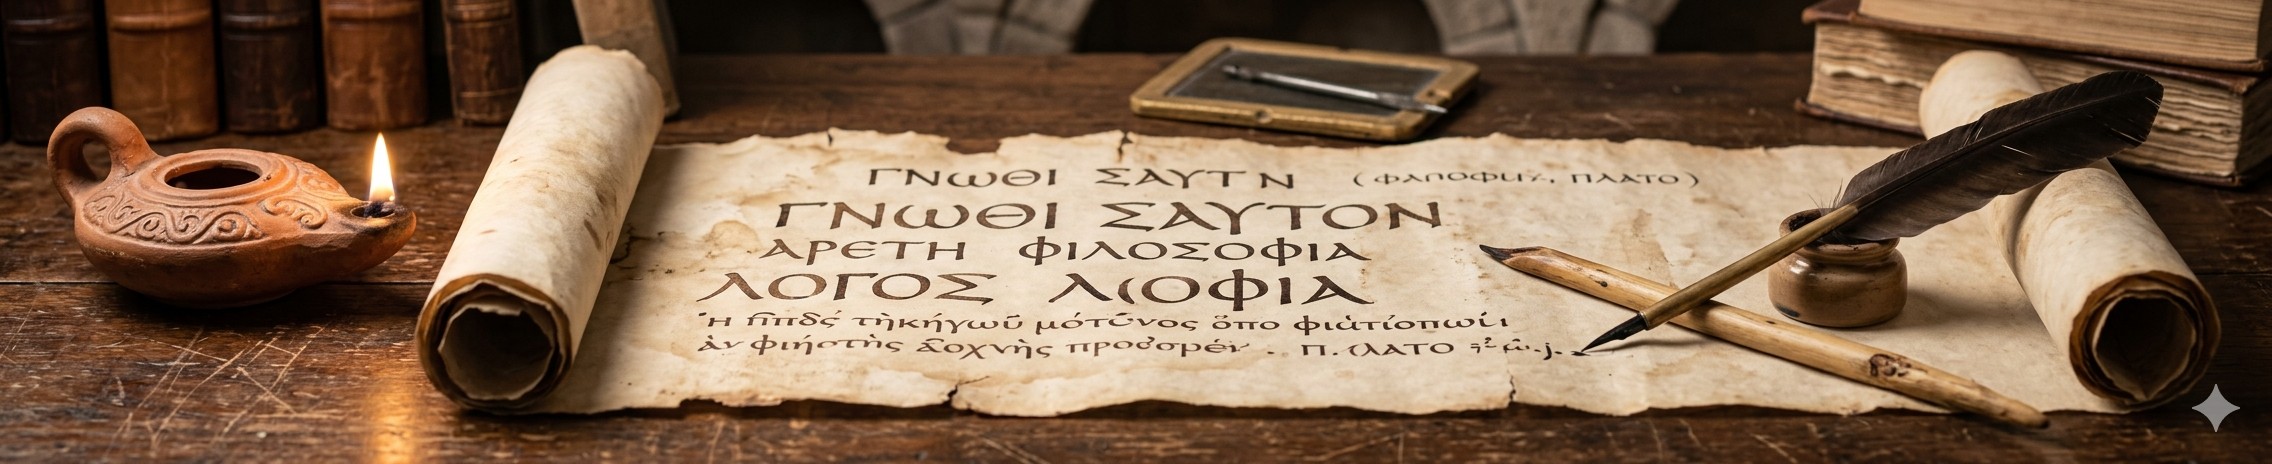 ΓΝωΘΙ ΣΑΥΤ Ν (ΦΑΠΟΦΙΙ, ΠΛΑΤΟ)
ΓΝωΘΙ ΣΑΥΤΟΝ
ΑΡΕΤΗ ΦΙΛΟΣΟΦΙΑ
ΛΟΓΟΣ Λ(ΟΦΙΑ
τὴκήγωῦ μότῦνος ὅπο φιὰτίοπωίι
ἀν φιήοτὴς προσορέν . Π.